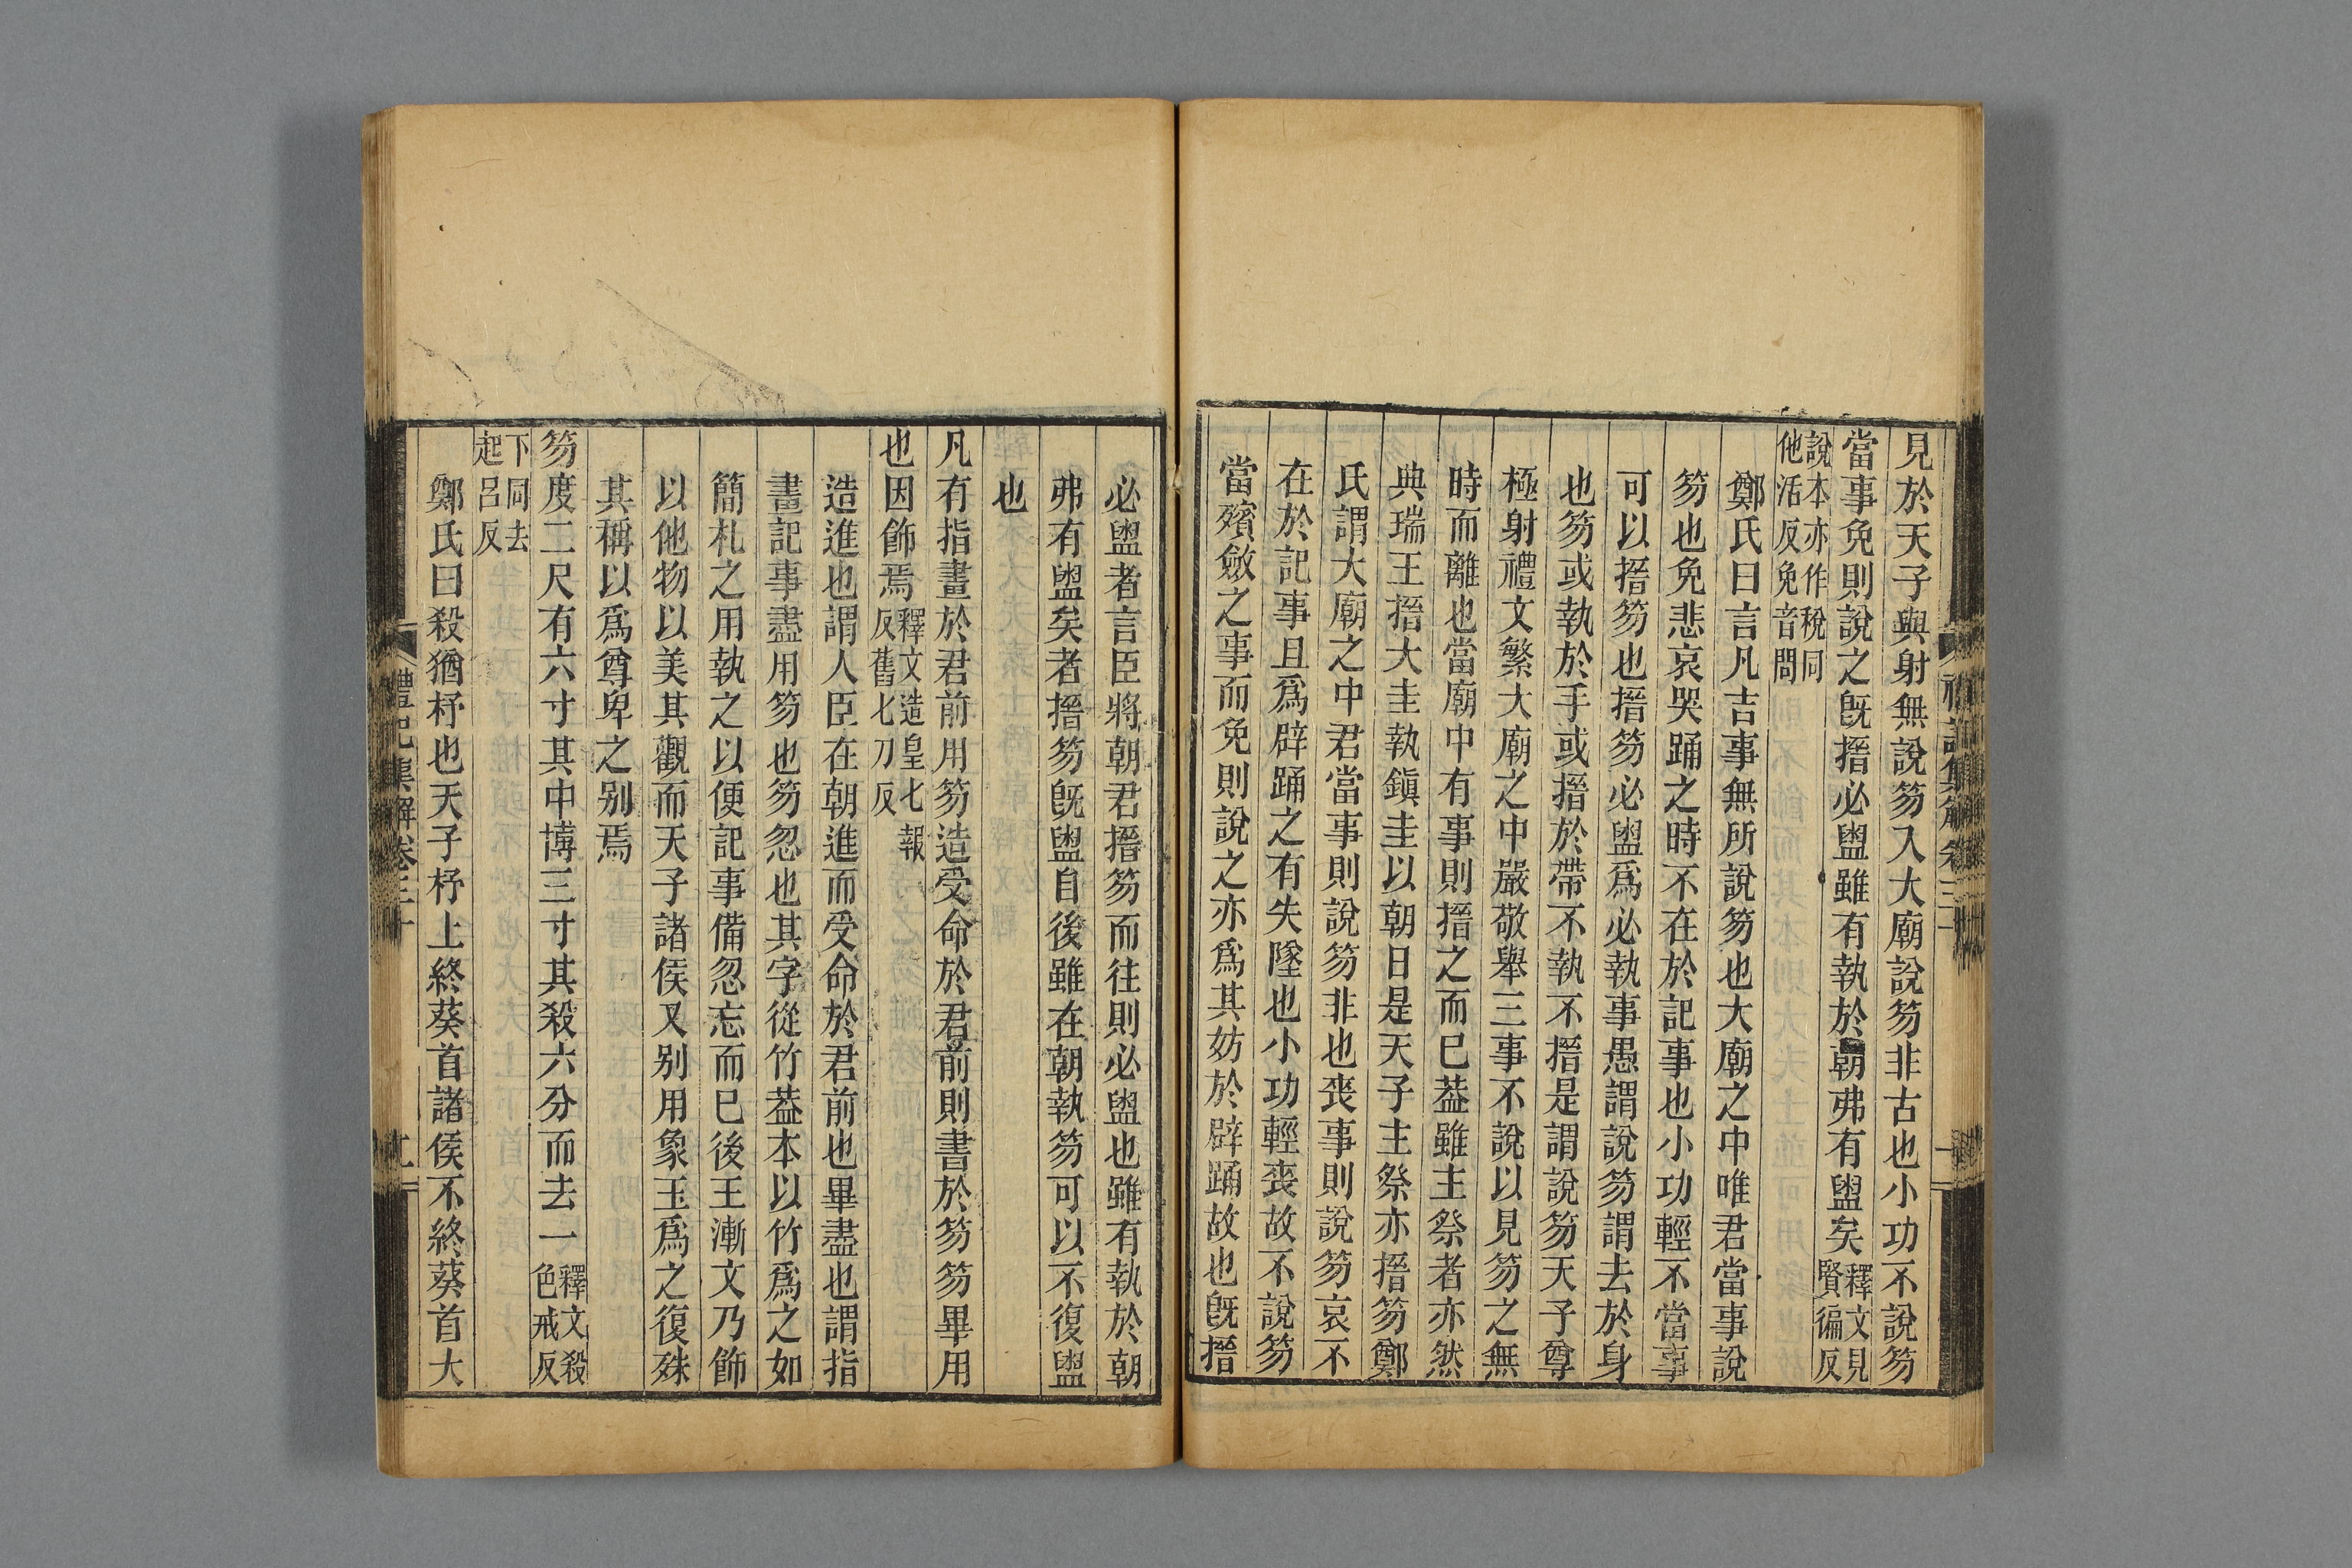 見於天子與射無說笏入大廟說笏非古也小功不說笏
當事免則說之旣搢必盥雖有執於朝弗有盥矣釋文見賢徧反
說本亦作稅同他活反免音問
鄭氏曰言凡吉事無所說笏也大廟之中唯君當事說
笏也免悲哀哭踊之時不在於記事也小功輕不當事
可以搢笏也搢笏必盥爲必執事愚謂說笏謂去於身
也笏或執於手或搢於帶不執不搢是謂說笏天子尊
極射禮文繁大廟之中嚴敬舉三事不說以見笏之無
時而離也當廟中有事則搢之而已葢雖主祭者亦然
典瑞王搢大圭執鎭圭以朝日是天子主祭亦搢笏鄭
氏謂大廟之中君當事則說笏非也喪事則說笏哀不
在於記事且爲辟踊之有失墜也小功輕喪故不說笏
當殯斂之事而免則說之亦爲其妨於辟踊故也旣搢
必盥者言臣將朝君搢笏而往則必盥也雖有執於朝
弗有盥矣者搢笏旣盥自後雖在朝執笏可以不復盥
也
凡有指畫於君前用笏造受命於君前則書於笏笏畢用
也因飾焉釋文造皇七報反舊七刀反
造進也謂人臣在朝進而受命於君前也畢盡也謂指
畫記事盡用笏也笏忽也其字從竹葢本以竹爲之如
簡札之用執之以便記事備忽忘而已後王漸文乃飾
以他物以美其觀而天子諸侯又别用象玉爲之復殊
其稱以爲尊卑之别焉
笏度二尺有六寸其中博三寸其殺六分而去一釋文殺色戒反
下同去起呂反
鄭氏曰殺猶杼也天子杼上終葵首諸侯不終葵首大
禮記集解卷三十